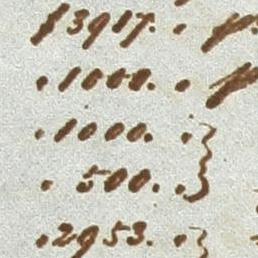 1397.
. 1000. .
. 1000. .
. 500. .
. 2953. .